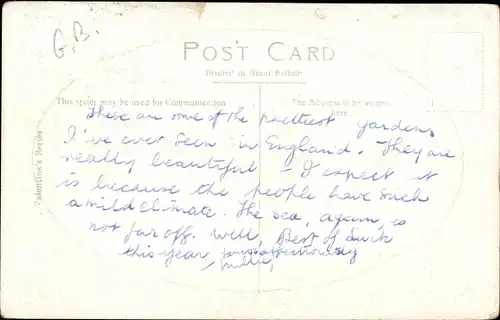 G.B.
POST CARD
Printed in Great Britain
This space may be used for Communication
The Address to be written here
Valentine's Series
These are some of the prettiest gardens
I've ever seen in England. They are
really beautiful – I expect it
is because the people have such
a mild climate. The sea, again, is
not far off. Well, Best of Luck
this year, yours affectionately
Millie,